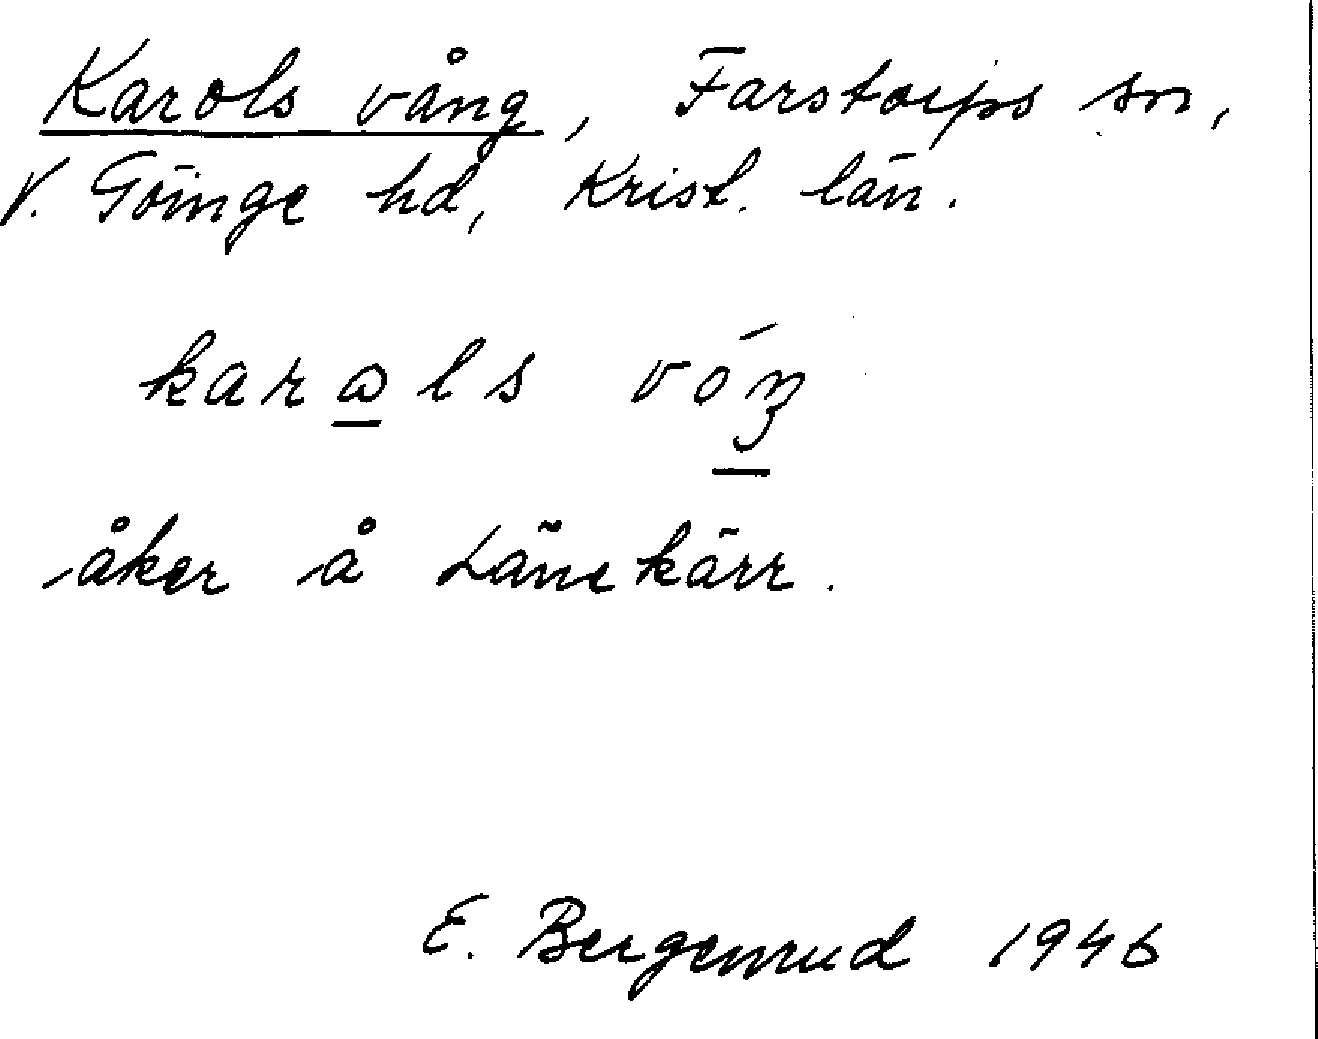 Karols vång, Farstorps sn,
V. Göinge hd, Krist. län.
karals vóŋ
åker å Länekärr.
E. Bergenrud 1946